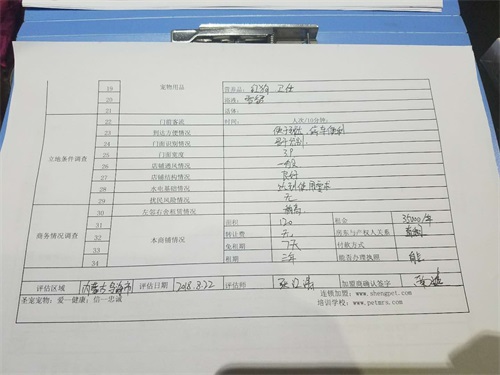 19 宠物用品 营养品:红狗 卫仕
20 器械:
21 活体:
立地条件调查
22 门前客流 时间: 人次/10分钟:
23 到达方便情况
24 门面识别情况
25 门面宽度 3.9
26 店铺通风情况 一般
27 店铺结构情况 良好
28 水电基础情况 达到使用要求
29 扰民风险情况 无
30 左邻右舍租赁情况
商务情况调查
31 本商铺情况 面积 120 租金 35000/年
32 转让费 无 房东与产权人关系
33 免租期 7天 付款方式
34 租期 三年 能否办理执照
评估区域 内蒙古乌海市 评估日期 2018.8.22 评估师 加盟商确认签字
圣宠宠物:爱—健康;信—忠诚 连锁加盟:www.shengpet.com
培训学校:www.petmra.com